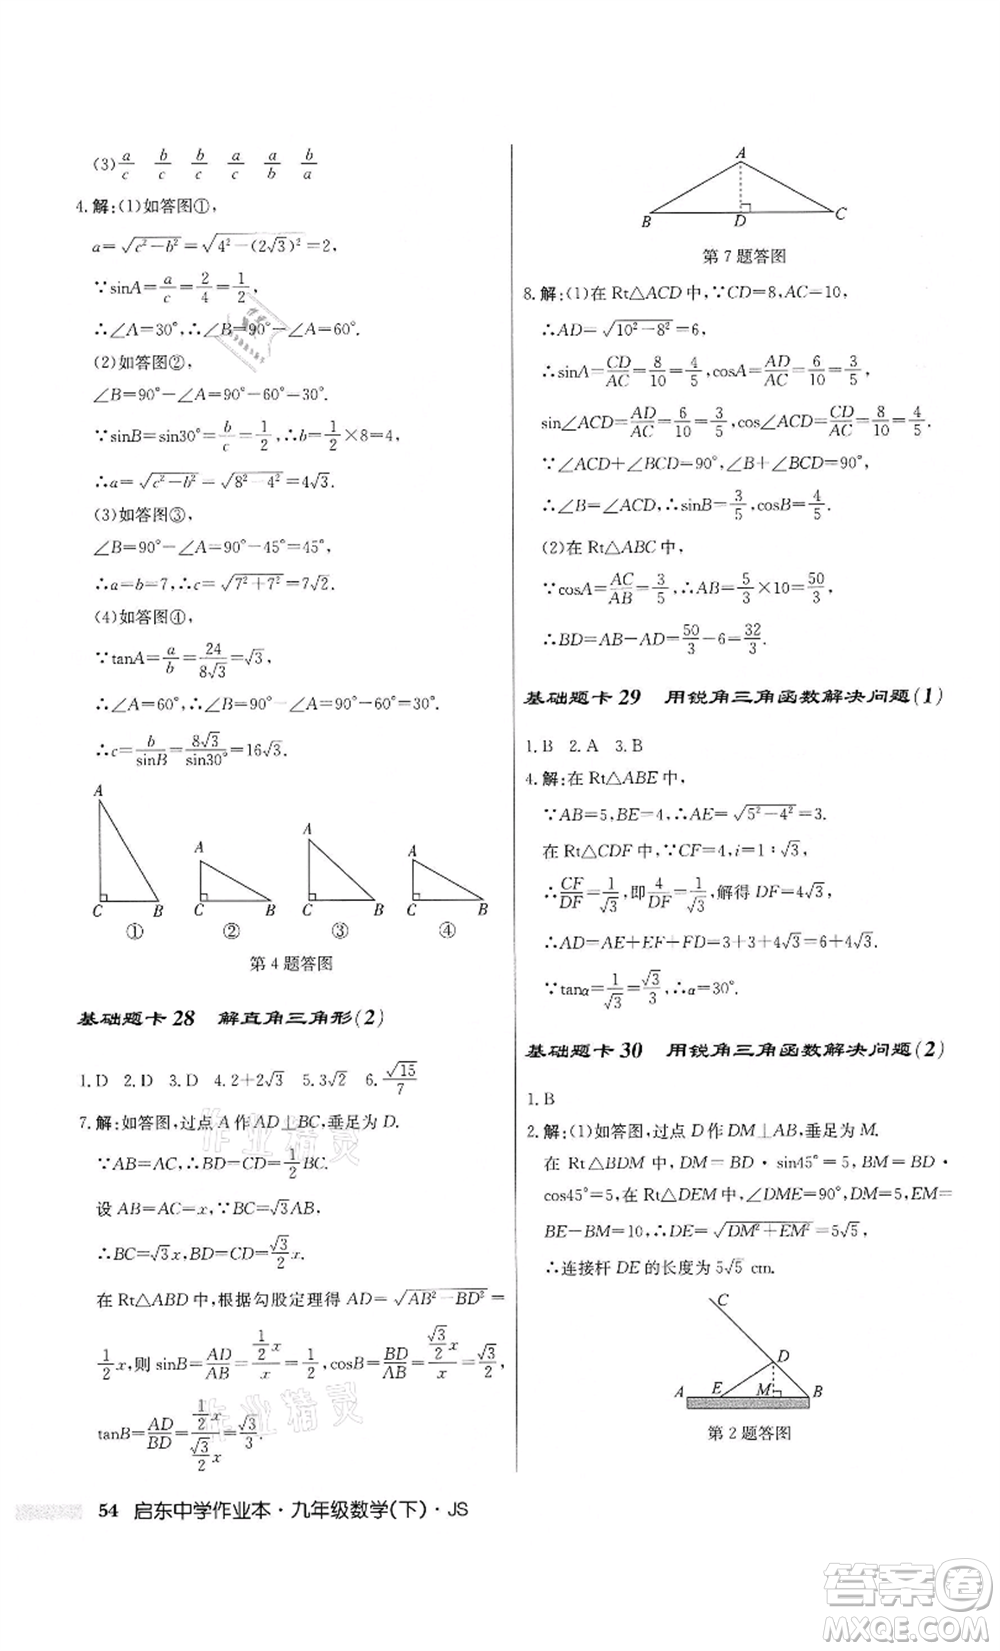 (3) a/c b/c b/c a/c a/b b/a
4.解:(1)如答图①,
a=√(c²-b²)=√(4²-(2√3)²)=2.
∵sinA=a/c=2/4=1/2,
∴∠A=30°,∴∠B=90°-∠A=60°.
(2)如答图②,
∠B=90°-∠A=90°-60°=30°.
∵sinB=sin30°=b/c=1/2,∴b=1/2×8=4,
∴a=√(c²-b²)=√(8²-4²)=4√3.
(3)如答图③,
∠B=90°-∠A=90°-45°=45°,
∴a=b=7,∴c=√(7²+7²)=7√2.
(4)如答图④,
∵tanA=a/b=24/8√3=√3,
∴∠A=60°,∴∠B=90°-∠A=30°,
∴c=b/sinB=8√3/sin30°=16√3.
A C B A C B A C B A C B
① ② ③ ④
第4题答图
基础题卡28 解直角三角形(2)
1.D 2.D 3.D 4.2+2√3 5.3√2 6.√15/7
7.解:如答图,过点A作AD⊥BC,垂足为D.
∵AB=AC,∴BD=CD=1/2BC.
设AB=AC=x,∵BC=√3AB,
∴BC=√3x,BD=CD=√3/2x.
在Rt△ABD中,根据勾股定理得AD=√(AB²-BD²)=
1/2x,则sinB=AD/AB=1/2x/x=1/2,cosB=BD/AB=√3/2x/x=√3/2,
tanB=AD/BD=1/2x/√3/2x=√3/3.
54 启东中学作业本·九年级数学(下)·JS
A
B D C
第7题答图
8.解:(1)在Rt△ACD中,∵CD=8,AC=10,
∴AD=√(10²-8²)=6,
∴sinA=CD/AC=8/10=4/5,cosA=AD/AC=6/10=3/5,
sin∠ACD=AD/AC=6/10=3/5,cos∠ACD=CD/AC=8/10=4/5.
∵∠ACD+∠BCD=90°,∠B+∠BCD=90°,
∴∠B=∠ACD,∴sinB=3/5,cosB=4/5.
(2)在Rt△ABC中,
∵cosA=AC/AB=3/5,∴AB=5/3×10=50/3,
∴BD=AB-AD=50/3-6=32/3.
基础题卡29 用锐角三角函数解决问题(1)
1.B 2.A 3.B
4.解:在Rt△ABE中,
∵AB=5,BE=4,∴AE=√(5²-4²)=3.
在Rt△CDF中,∵CF=4,i=1∶√3,
∴CF/DF=1/√3,即4/DF=1/√3,解得DF=4√3,
∴AD=AE+EF+FD=3+3+4√3=6+4√3.
∵tanα=1/√3=√3/3,∴α=30°.
基础题卡30 用锐角三角函数解决问题(2)
1.B
2.解:(1)如答图,过点D作DM⊥AB,垂足为M.
在Rt△BDM中,DM=BD·sin45°=5,BM=BD·
cos45°=5,在Rt△DEM中,∠DME=90°,DM=5,EM=
BE-BM=10,∴DE=√(DM²+EM²)=5√5,
∴连接杆DE的长度为5√5 cm.
C
D
A E M B
第2题答图
作业精灵
作业精灵
答案圈
MXQE.COM